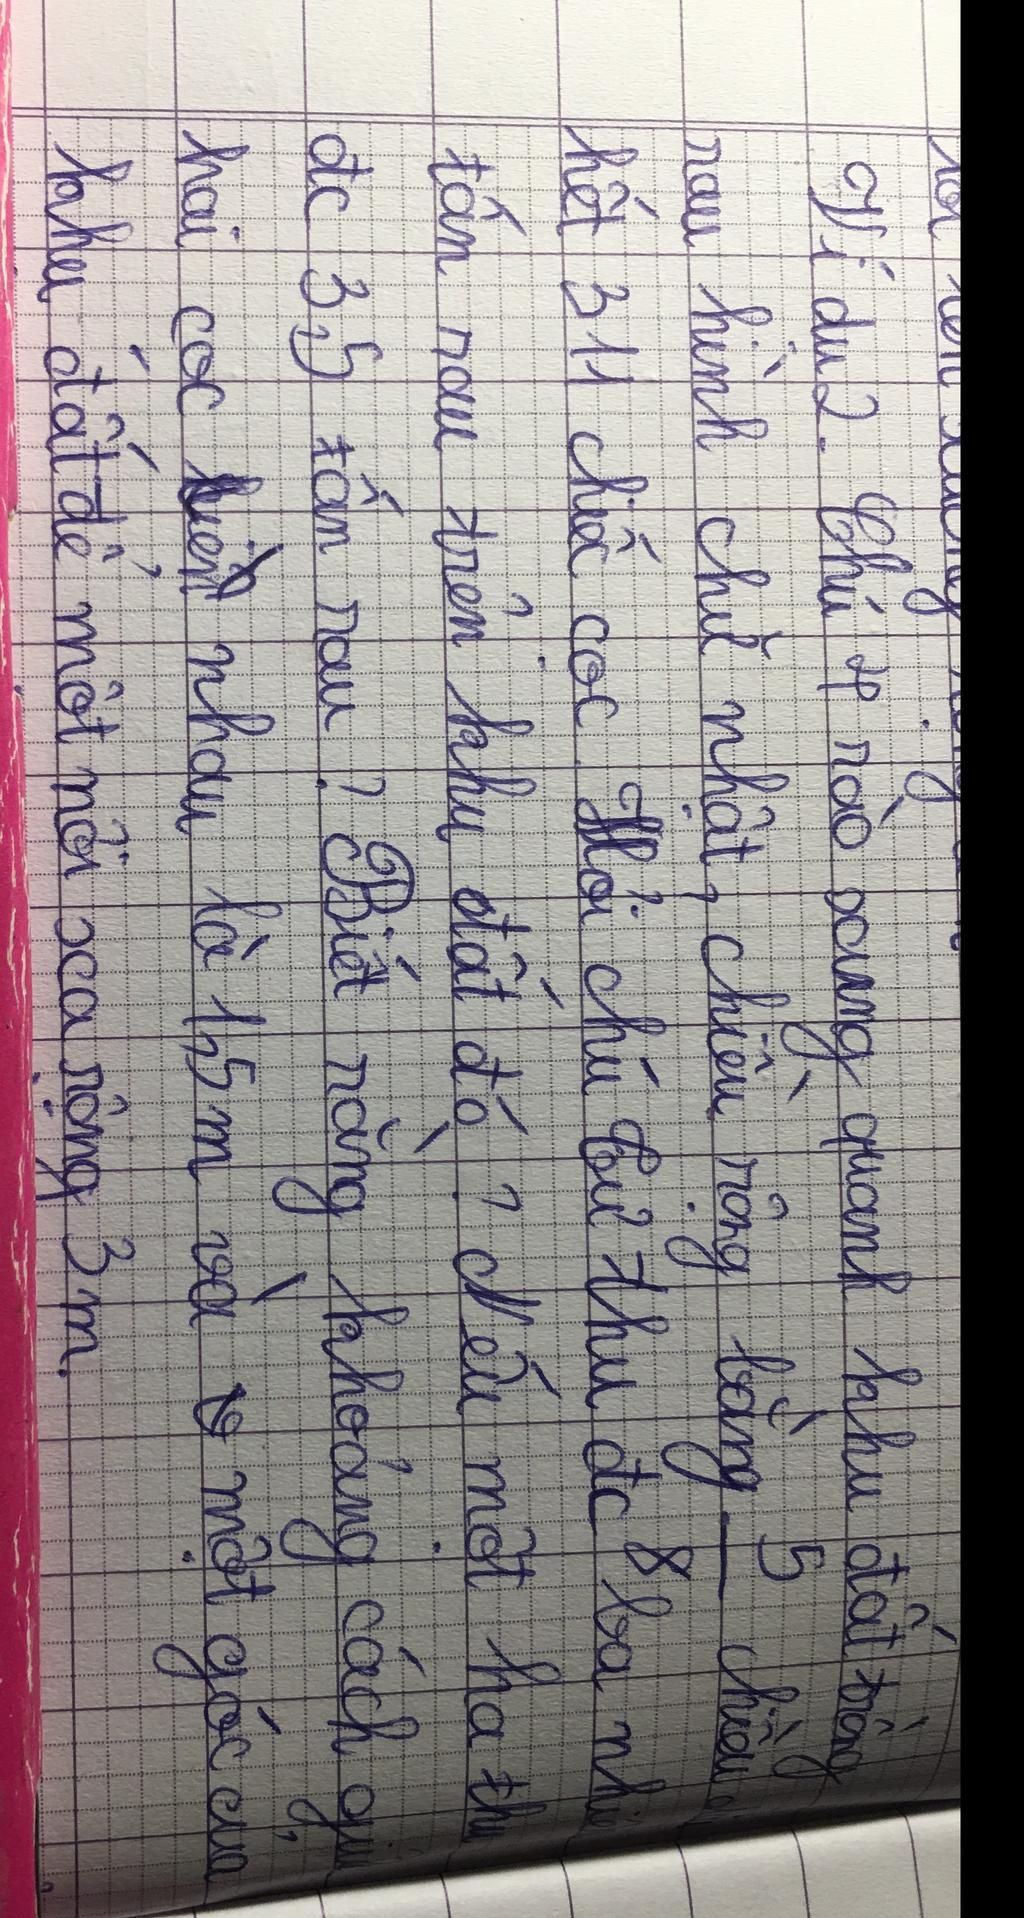 Ví dụ 2. Chú rào xung quanh khu đất trồng
rau hình chữ nhật, chiều rộng bằng 5 chiều
hết 311 chiếc cọc. Hỏi chú thu đc 8 ba
tấn rau trên khu đất đó? Nếu một ha thu
đc 3,5 tấn rau? Biết rằng khoảng cách giữa
hai cọc liền nhau là 1,5m và một góc của
khu đất để một nối xa rộng 3m.